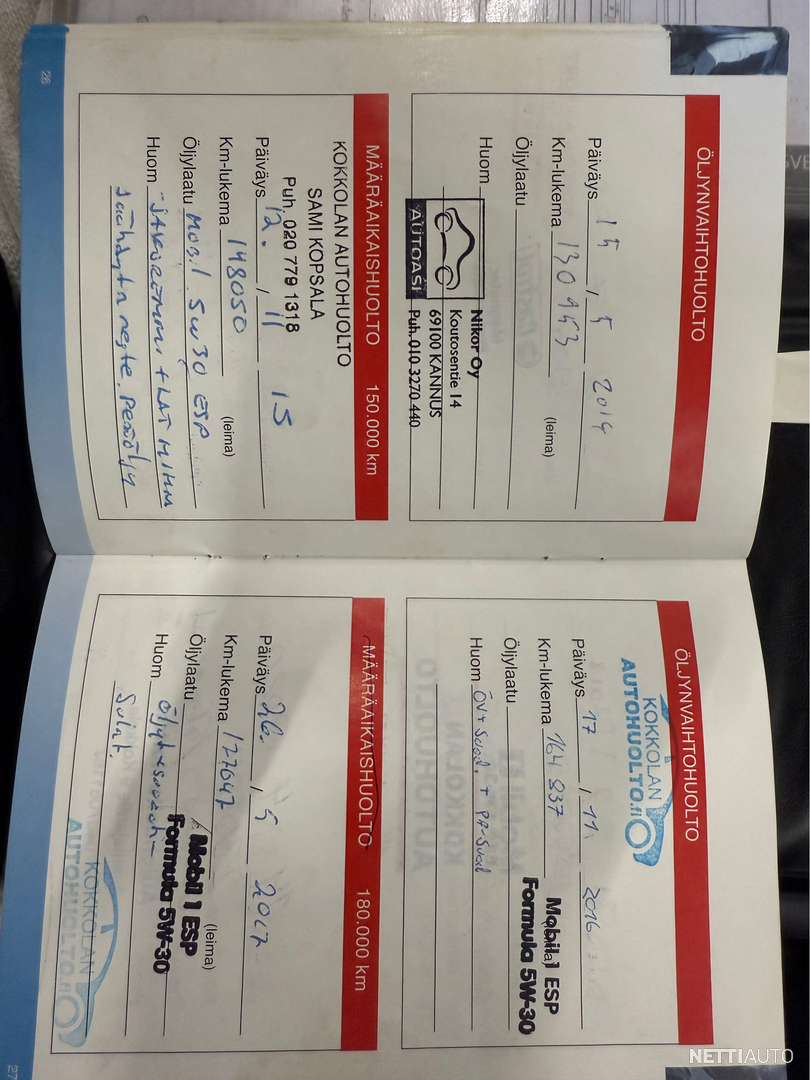 ÖLJYNVAIHTOHUOLTO
Päiväys 15 / 5 2014
Km-lukema 130963
(leima)
Öljylaatu
Huom
AUTOASI
Nikor Oy
Koutosentie 14
69100 KANNUS
Puh. 010 3270 440
MÄÄRÄAIKAISHUOLTO 150.000 km
KOKKOLAN AUTOHUOLTO
SAMI KOPSALA
Puh. 020 779 1318
Päiväys 12. / 11 15
Km-lukema 148050
(leima)
Öljylaatu MOBIL 5W30 ESP
Huom
26
ÖLJYNVAIHTOHUOLTO
KOKKOLAN
AUTOHUOLTO.fi
Päiväys 17 / 11 2016
Km-lukema 164837
(leima)
Mobil 1 ESP
Formula 5W-30
Öljylaatu
Huom ÖV+Suod. + PA-Suod
MÄÄRÄAIKAISHUOLTO 180.000 km
Päiväys 26. / 5 2017
Km-lukema 177647
(leima)
Öljylaatu
Mobil 1 ESP
Formula 5W-30
Huom Öljyt+suodat-
KOKKOLAN
AUTOHUOLTO.fi
27
NETTIAUTO